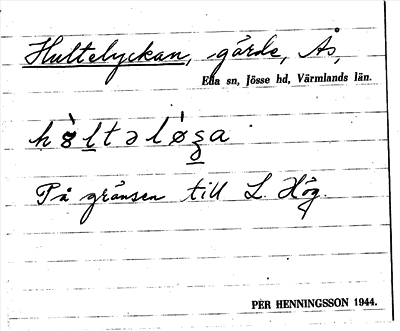 Hultelyckan, gärde, Ås,
Eda sn, Jösse hd, Värmlands län.
På gränsen till L. Hög.
PER HENNINGSSON 1944.